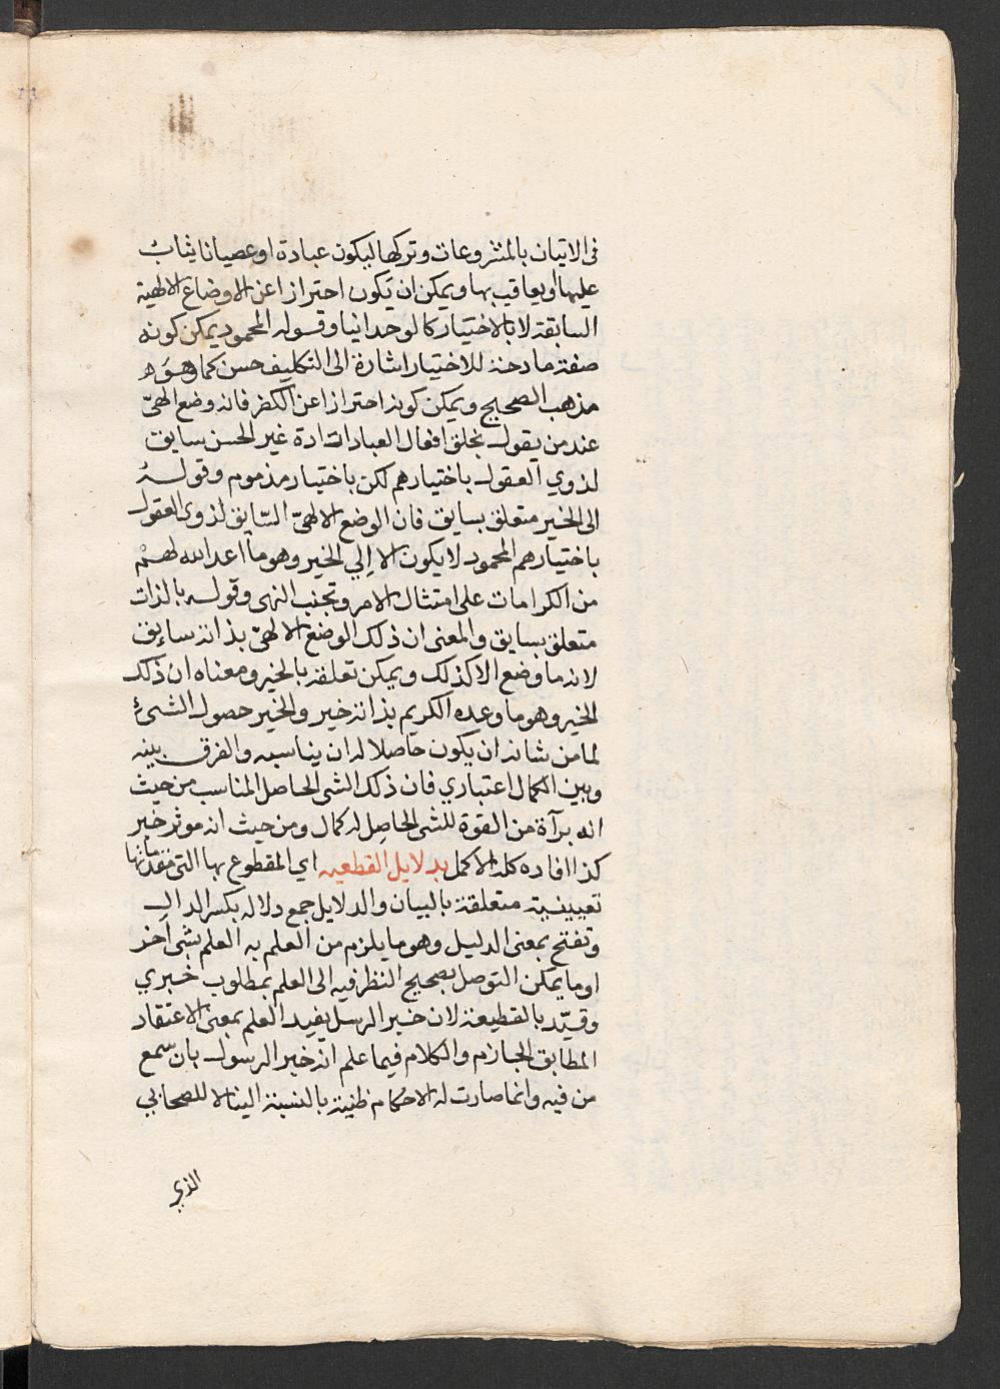 فى الاتيان بالمشروعات وتركها ليكون عبادة او عصيانا يثاب
عليها او يعاقب بها ويمكن ان يكون احترازا عن الاوضاع الالهية
السابقة لا بالاختيار كالوحدانيا وقوله المحمود يمكن كونه
صفة مادحة للاختيار اشارة الى التكليف حسن كما وهو
مذهب الصحيح ويمكن كونه احترازا عن الكفر فانه وضع الهىّ
عند من يقول بخلق افعال العبادات ادة غير الحسن سايق
لذوي العقول باختيارهم لكن باختيار مذموم وقوله
الى الخير متعلق بسايق فان الوضع الالهىّ السّايق لذوى العقول
باختيارهم المحمود لا يكون الا إلي الخير وهو ما اعد الله لهم
من الكرامات على امتثال الامر وتجنب النهى وقوله بالذات
متعلق بسايق والمعنى ان ذلك الوضع الالهىّ بذاته سايق
لانه ما وضع الا كذلك ويمكن تعلقه بالخير ومعناه ان ذلك
الخير وهو ما وعده الكريم بذاته خير والخير حصول الشئ
لما من شانه ان يكون حاصلا له ان يناسبه والفرق بينه
وبين الكمال اعتباري فان ذلك الشى الحاصل المناسب من حيث
انه برآة من القوة للشى الحاصل له كمال ومن حيث انه موثر خير
كذا افاده كله الاكمل بدلايل القطعيه اي المقطوع بها التى مقدماتها
تعيينية متعلقة بالبيان والدلايل جمع دلاله بكسر الدال
وتفتح بمعنى الدليل وهو ما يلزم من العلم به العلم بشى آخر
او ما يمكن التوصل بصحيح النظر فيه الى العلم بمطلوب خبري
وقيّد بالقطيعة لان خبر الرسل يفيد العلم بمعنى الاعتقاد
المطابق الجازم والكلام فيما علم انّه خبر الرسول بان سمع
من فيه وانما صارت له الاحكام ظنية بالنسبة الينا لا للصحابي
الذي